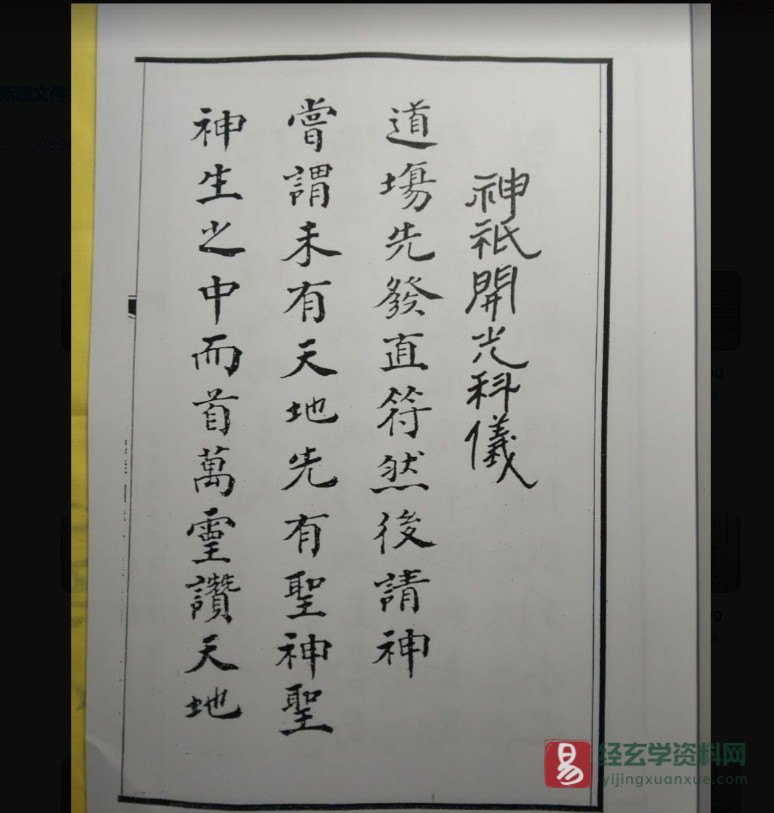 神祇開光科儀
道場先發直符然後請神
嘗謂未有天地先有聖神聖
神生之中而首萬靈讚天地
易
经玄学资料网
yijingxuanxue.com
新建文件